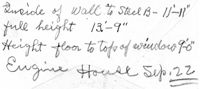 Inside of Wall to Steel B- 11'-11"
full height 13'-9"
Height floor to top of window 9'-0"
Engine House Sep. 22